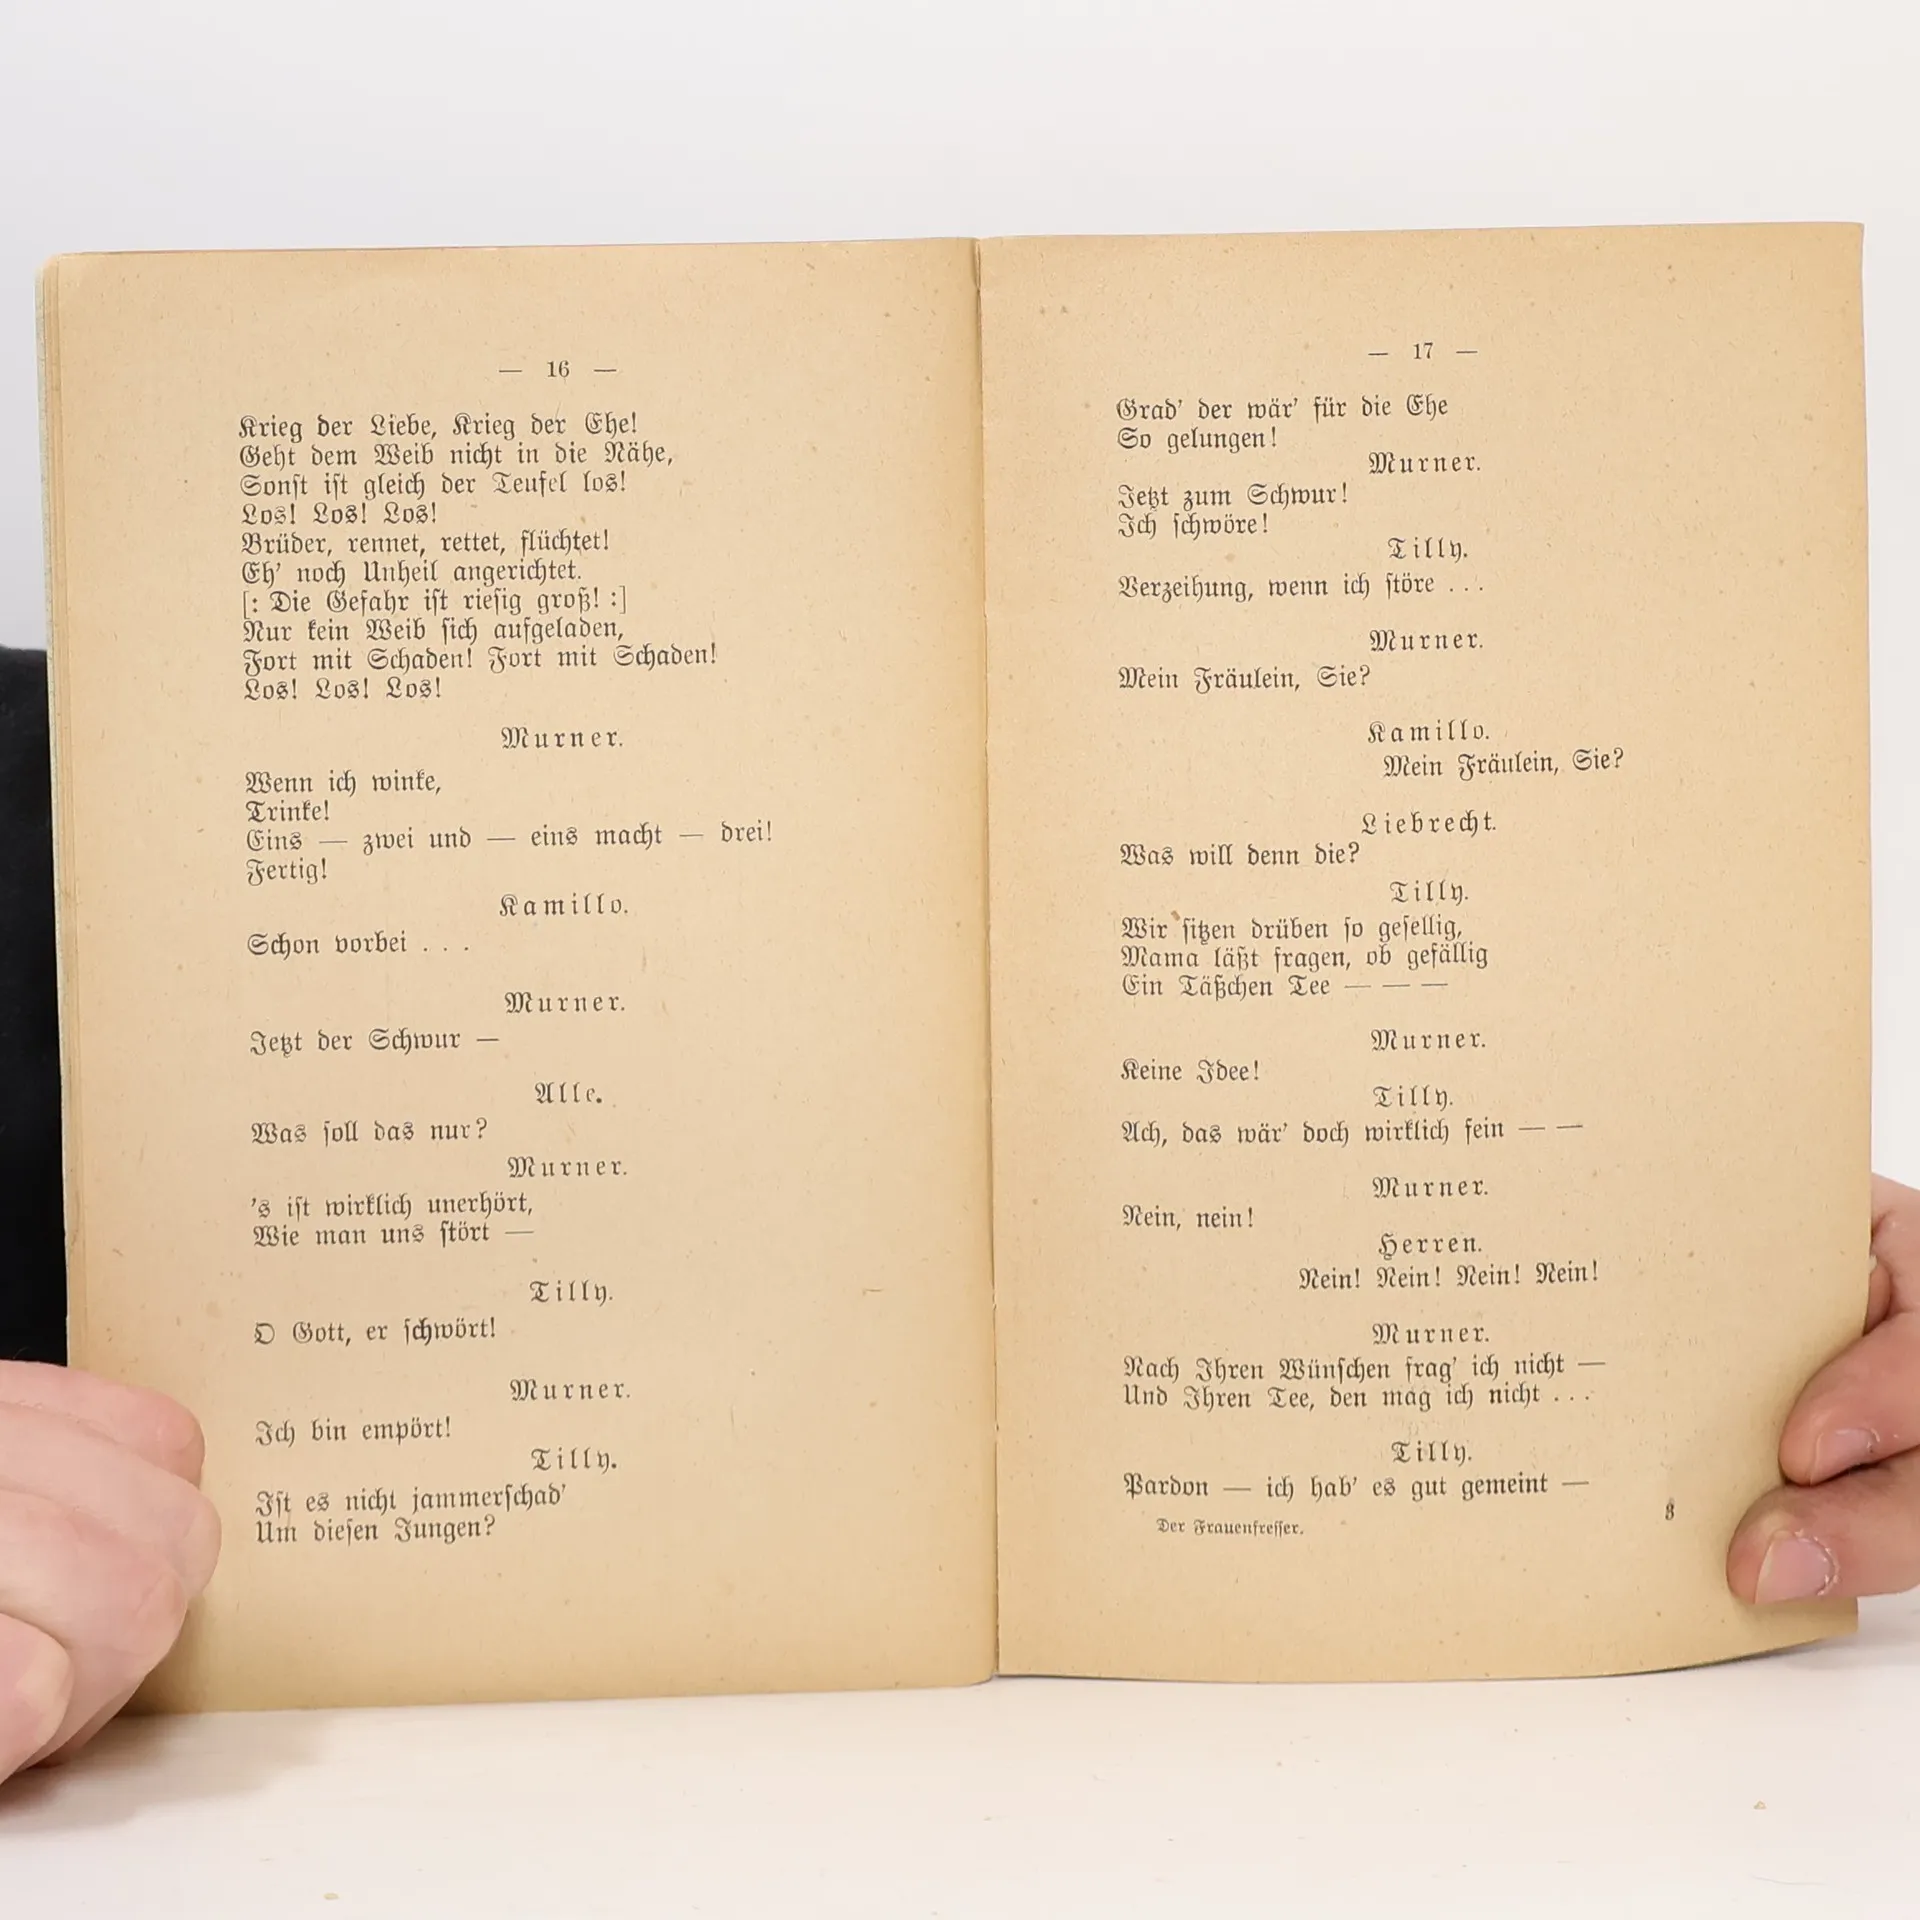 — 16 —
Krieg der Liebe, Krieg der Ehe!
Geht dem Weib nicht in die Nähe,
Sonst ist gleich der Teufel los!
Los! Los! Los!
Brüder, rennet, rettet, flüchtet!
Eh' noch Unheil angerichtet.
[: Die Gefahr ist riesig groß! :]
Nur kein Weib sich aufgeladen,
Fort mit Schaden! Fort mit Schaden!
Los! Los! Los!
Murner.
Wenn ich winke,
Trinke!
Eins — zwei und — eins macht — drei!
Fertig!
Kamillo.
Schon vorbei . . .
Murner.
Jetzt der Schwur —
Alle.
Was soll das nur?
Murner.
's ist wirklich unerhört,
Wie man uns stört —
Tilly.
O Gott, er schwört!
Murner.
Ich bin empört!
Tilly.
Ist es nicht jammerschad'
Um diesen Jungen?
— 17 —
Grad' der wär' für die Ehe
So gelungen!
Murner.
Jetzt zum Schwur!
Ich schwöre!
Tilly.
Verzeihung, wenn ich störe . . .
Murner.
Mein Fräulein, Sie?
Kamillo.
Mein Fräulein, Sie?
Liebrecht.
Was will denn die?
Tilly.
Wir sitzen drüben so gesellig,
Mama läßt fragen, ob gefällig
Ein Täßchen Tee — — —
Murner.
Keine Idee!
Tilly.
Ach, das wär' doch wirklich fein — —
Murner.
Nein, nein!
Herren.
Nein! Nein! Nein! Nein!
Murner.
Nach Ihren Wünschen frag' ich nicht —
Und Ihren Tee, den mag ich nicht . . .
Tilly.
Pardon — ich hab' es gut gemeint —
Der Frauenfresser. 3